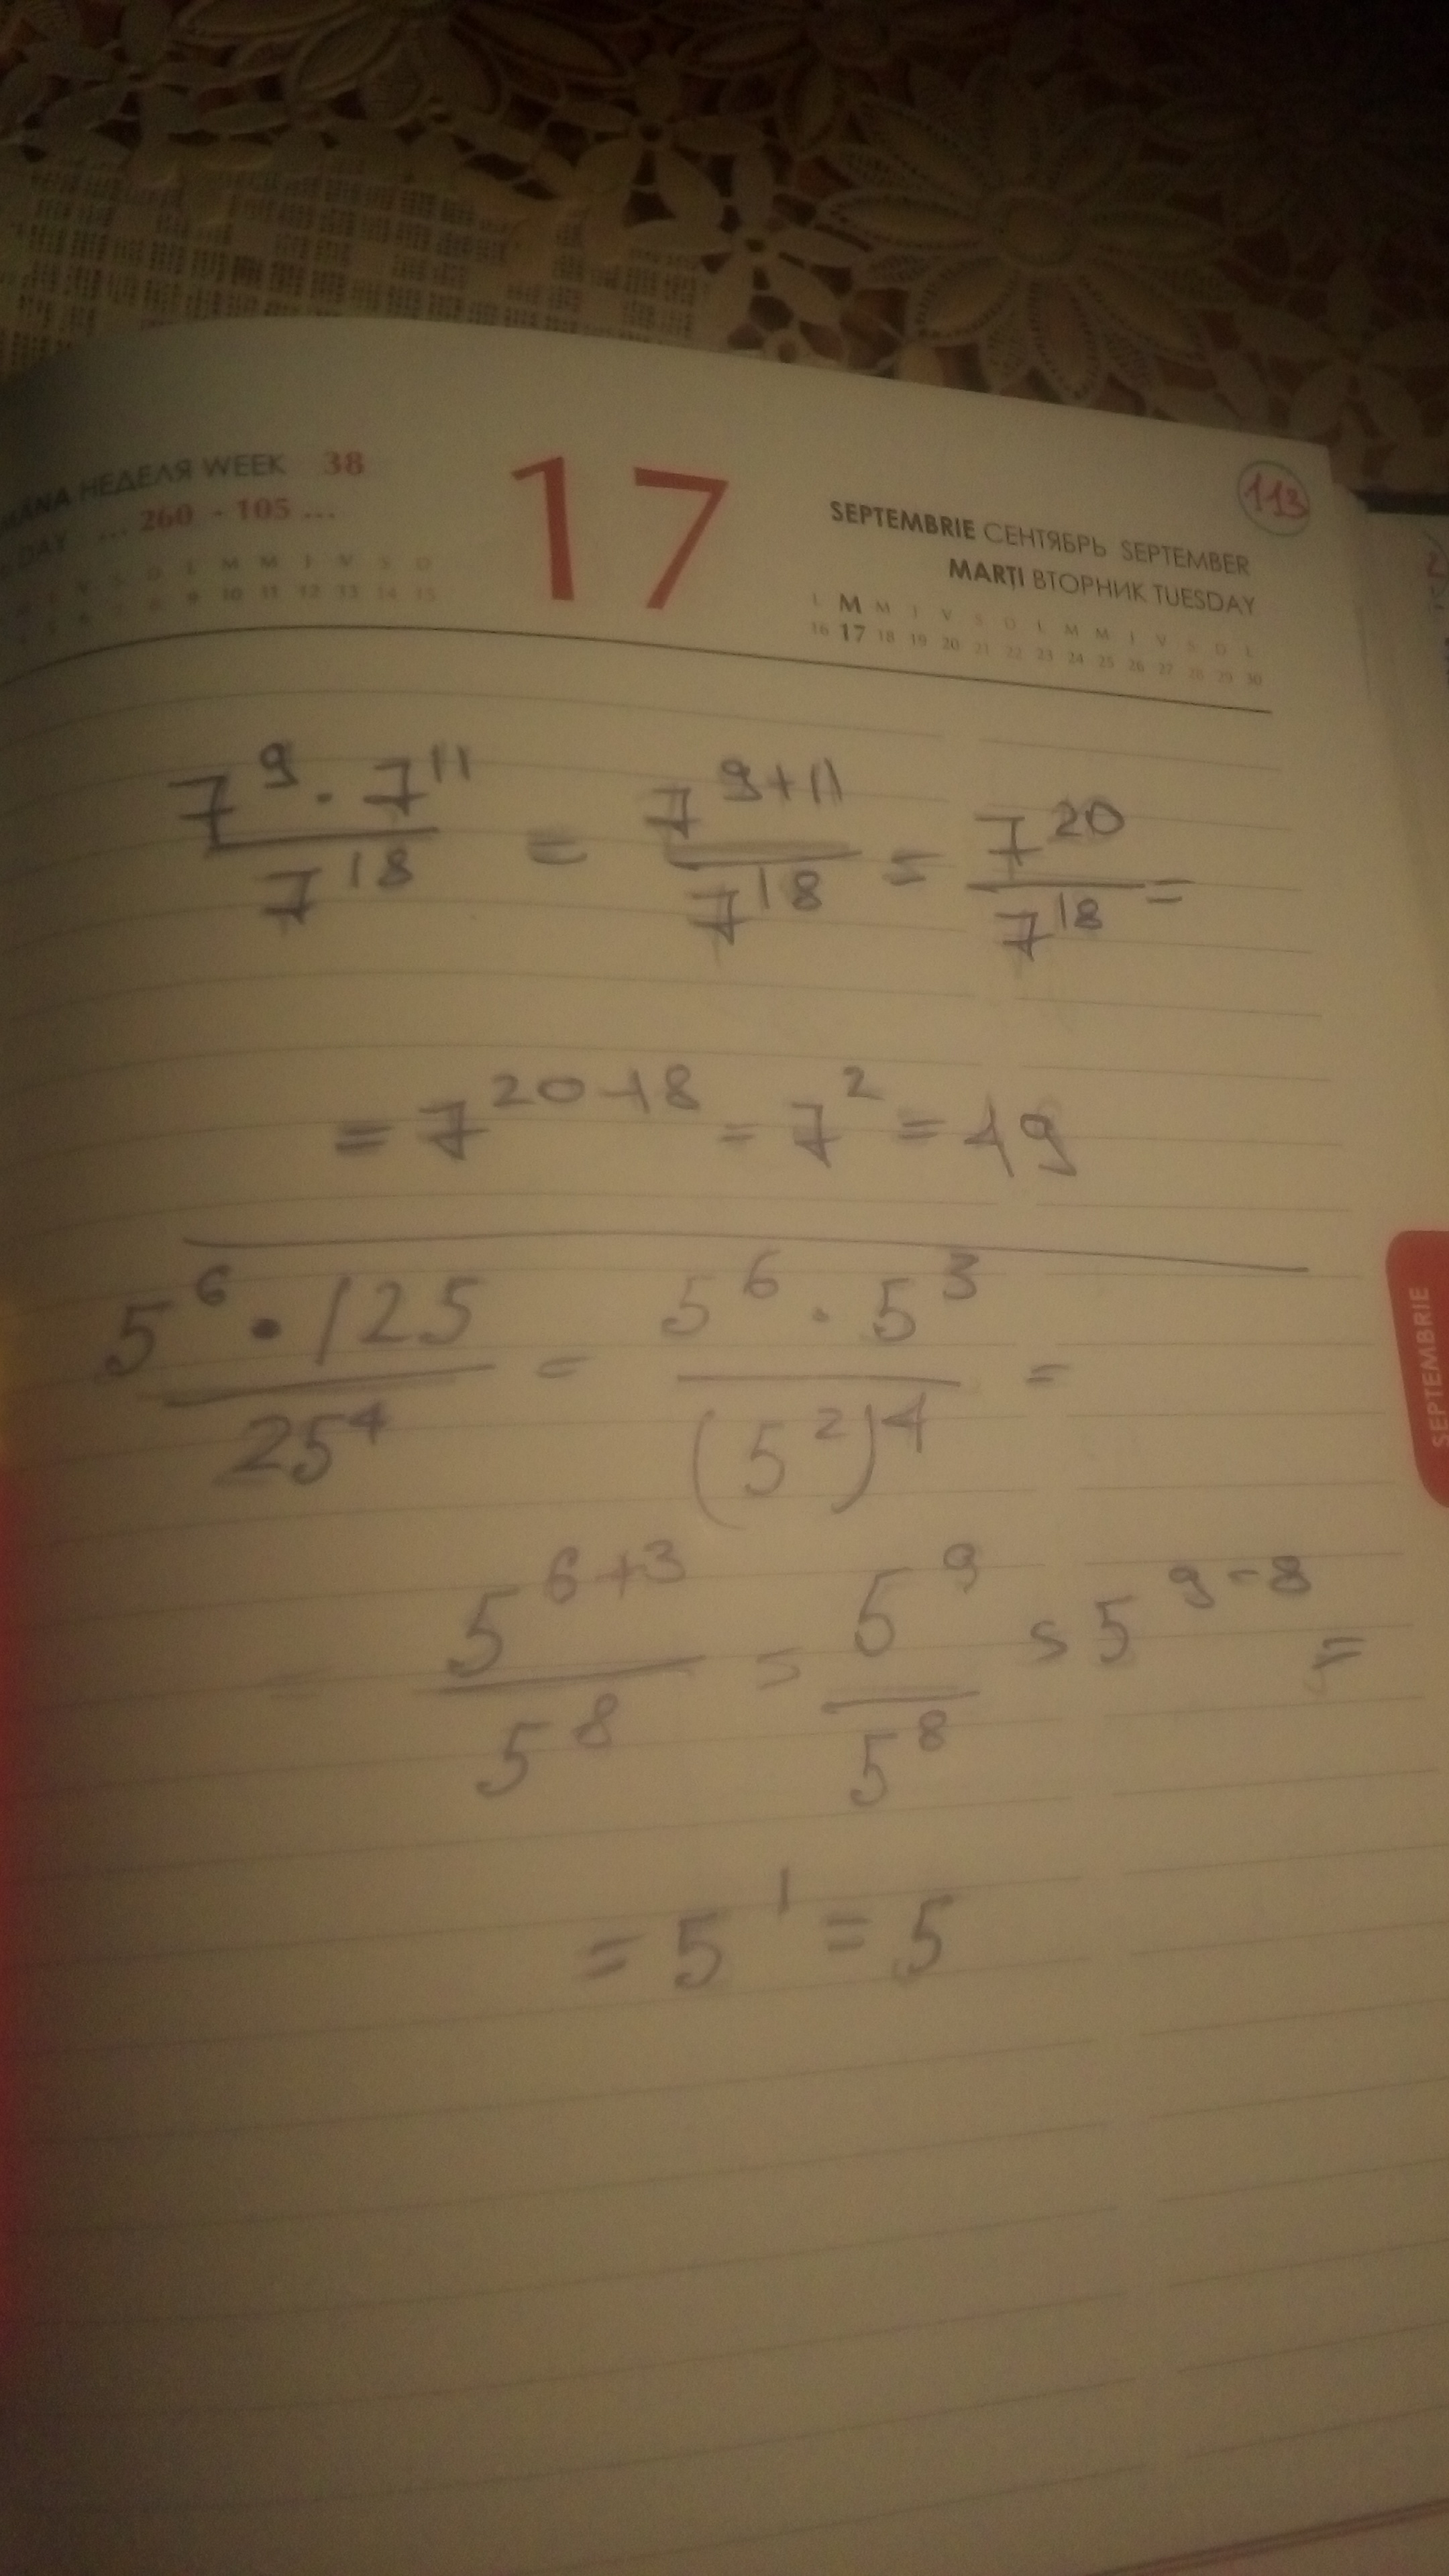 НЕДЕЛЯ WEEK 38
DAY ... 260 - 105 ...
17
SEPTEMBRIE СЕНТЯБРЬ SEPTEMBER
MARȚI ВТОРНИК TUESDAY
113
L M M J V S D L M M J V S D L
16 17 18 19 20 21 22 23 24 25 26 27 28 29 30
9 10 11 12 13 14 15
7^9 · 7^11 / 7^18 = 7^9+11 / 7^18 = 7^20 / 7^18 =
= 7^20-18 = 7^2 = 49
5^6 · 125 / 25^4 = 5^6 · 5^3 / (5^2)^4 =
= 5^6+3 / 5^8 = 5^9 / 5^8 = 5^9-8 =
= 5^1 = 5
SEPTEMBRIE